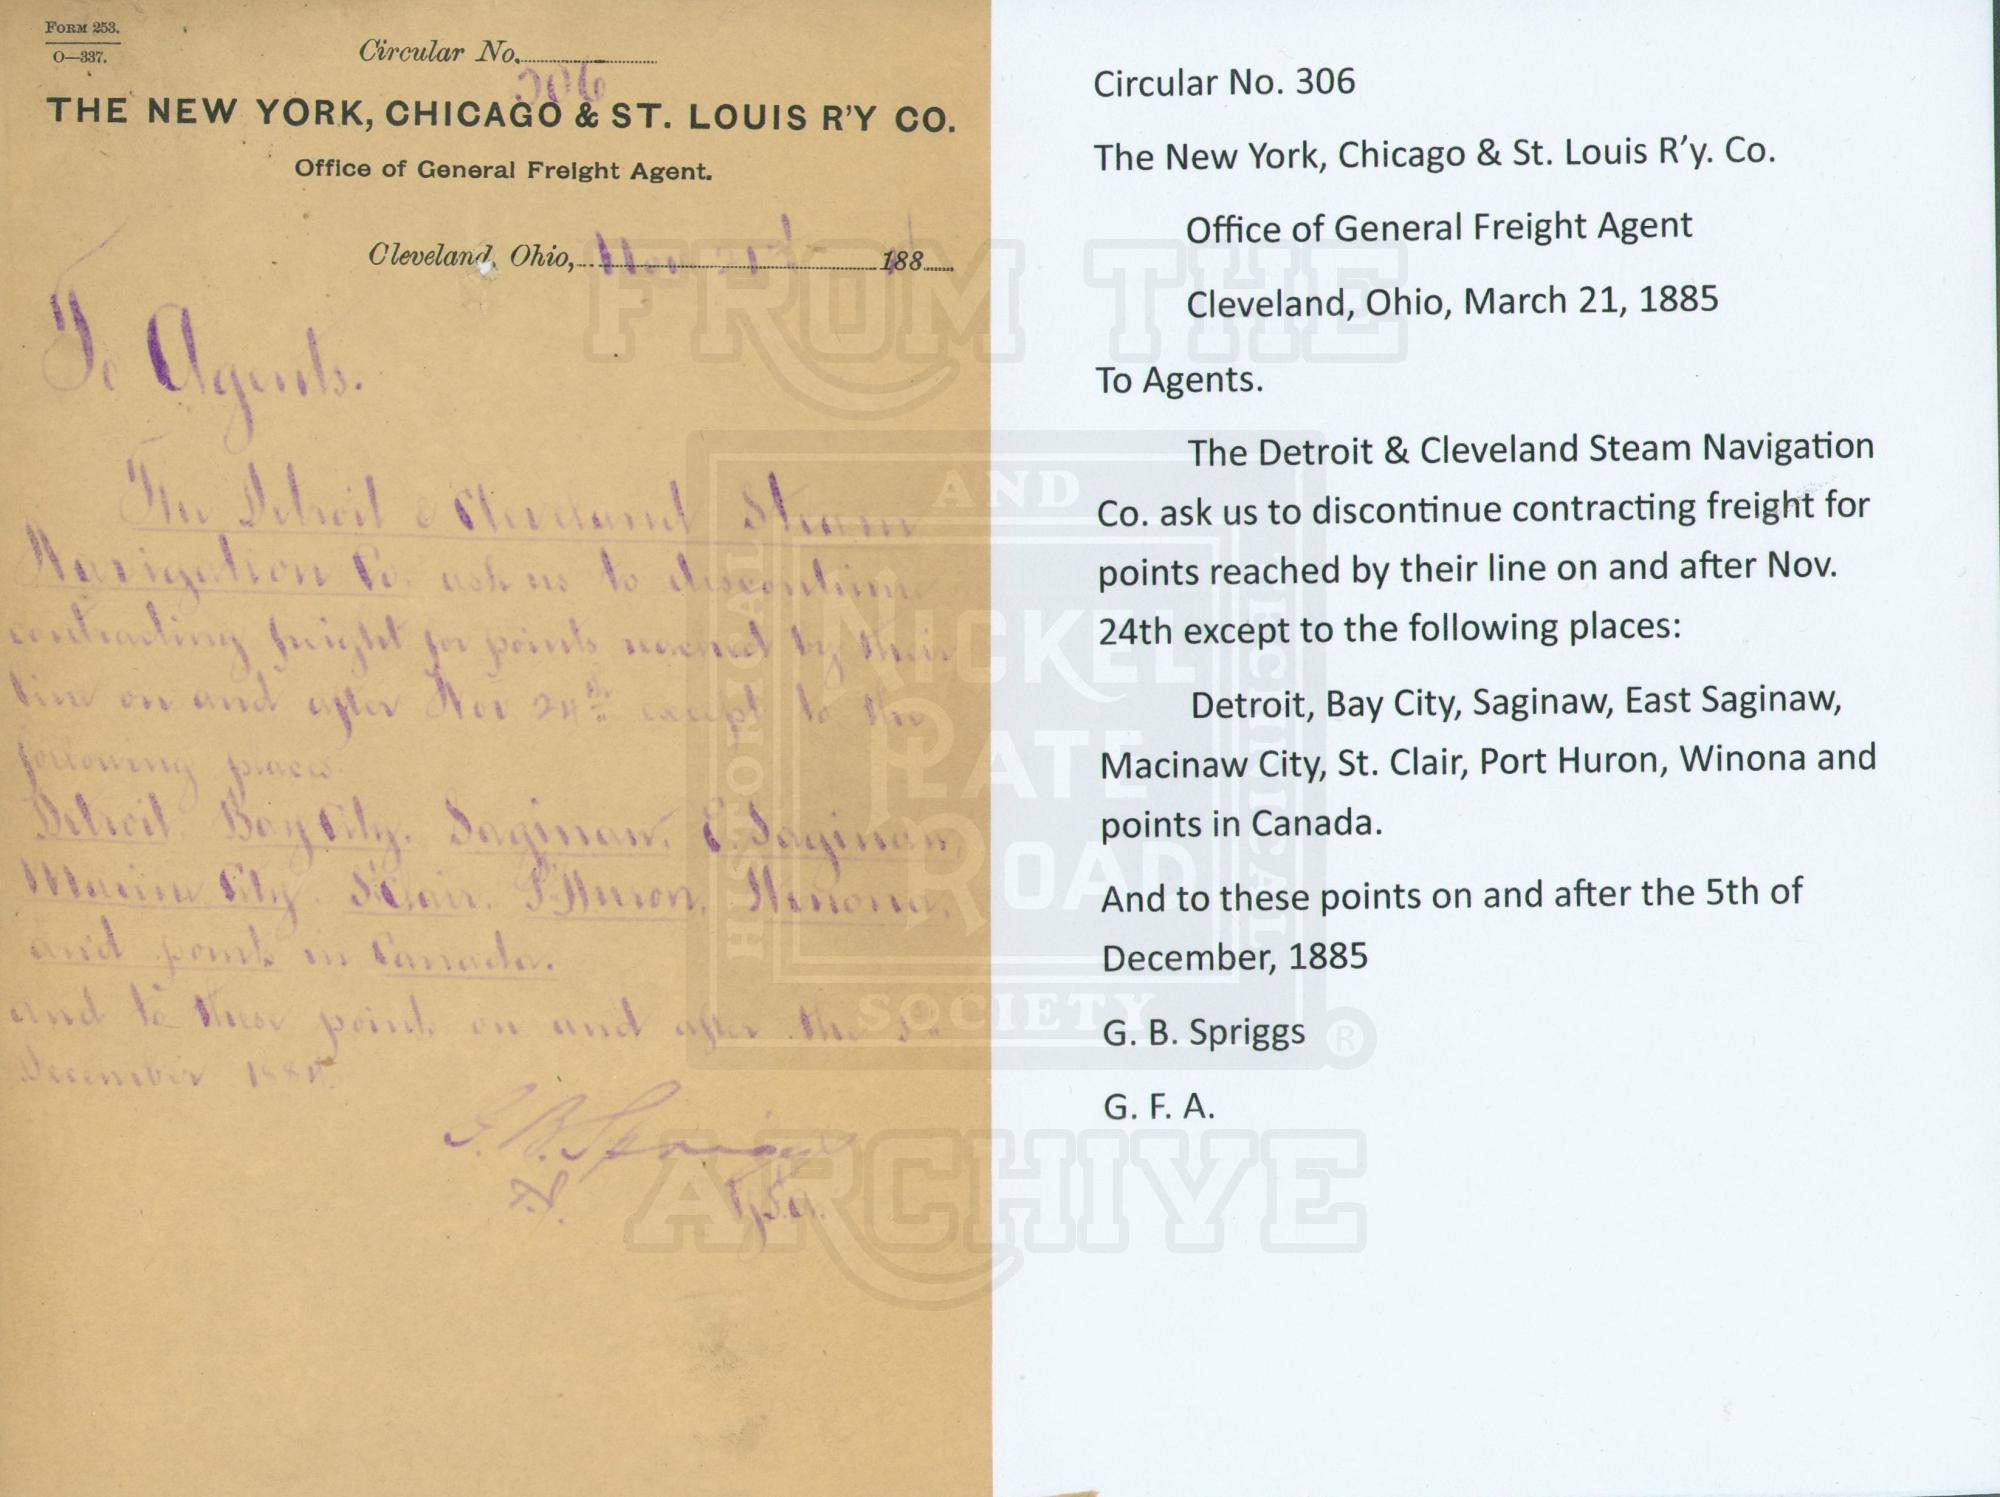 FORM 253.
O—337.
Circular No.
306
THE NEW YORK, CHICAGO & ST. LOUIS R'Y CO.
Office of General Freight Agent.
Cleveland, Ohio, Nov 21st 188
To Agents.
The Detroit & Cleveland Steam
Navigation Co. ask us to discontinue
contracting freight for points reached by their
line on and after Nov 24th except to the
following places.
Detroit, Bay City, Saginaw, E. Saginaw,
City, St Clair, P. Huron, Winona,
and points in Canada.
and to these points on and after the 5th
December 188
G. B. Spriggs
G.F.A.
Circular No. 306
The New York, Chicago & St. Louis R'y. Co.
Office of General Freight Agent
Cleveland, Ohio, March 21, 1885
To Agents.
The Detroit & Cleveland Steam Navigation
Co. ask us to discontinue contracting freight for
points reached by their line on and after Nov.
24th except to the following places:
Detroit, Bay City, Saginaw, East Saginaw,
Macinaw City, St. Clair, Port Huron, Winona and
points in Canada.
And to these points on and after the 5th of
December, 1885
G. B. Spriggs
G. F. A.
FROM THE
NICKEL
PLATE
ROAD
HISTORICAL
AND
TECHNICAL
SOCIETY
®
ARCHIVE